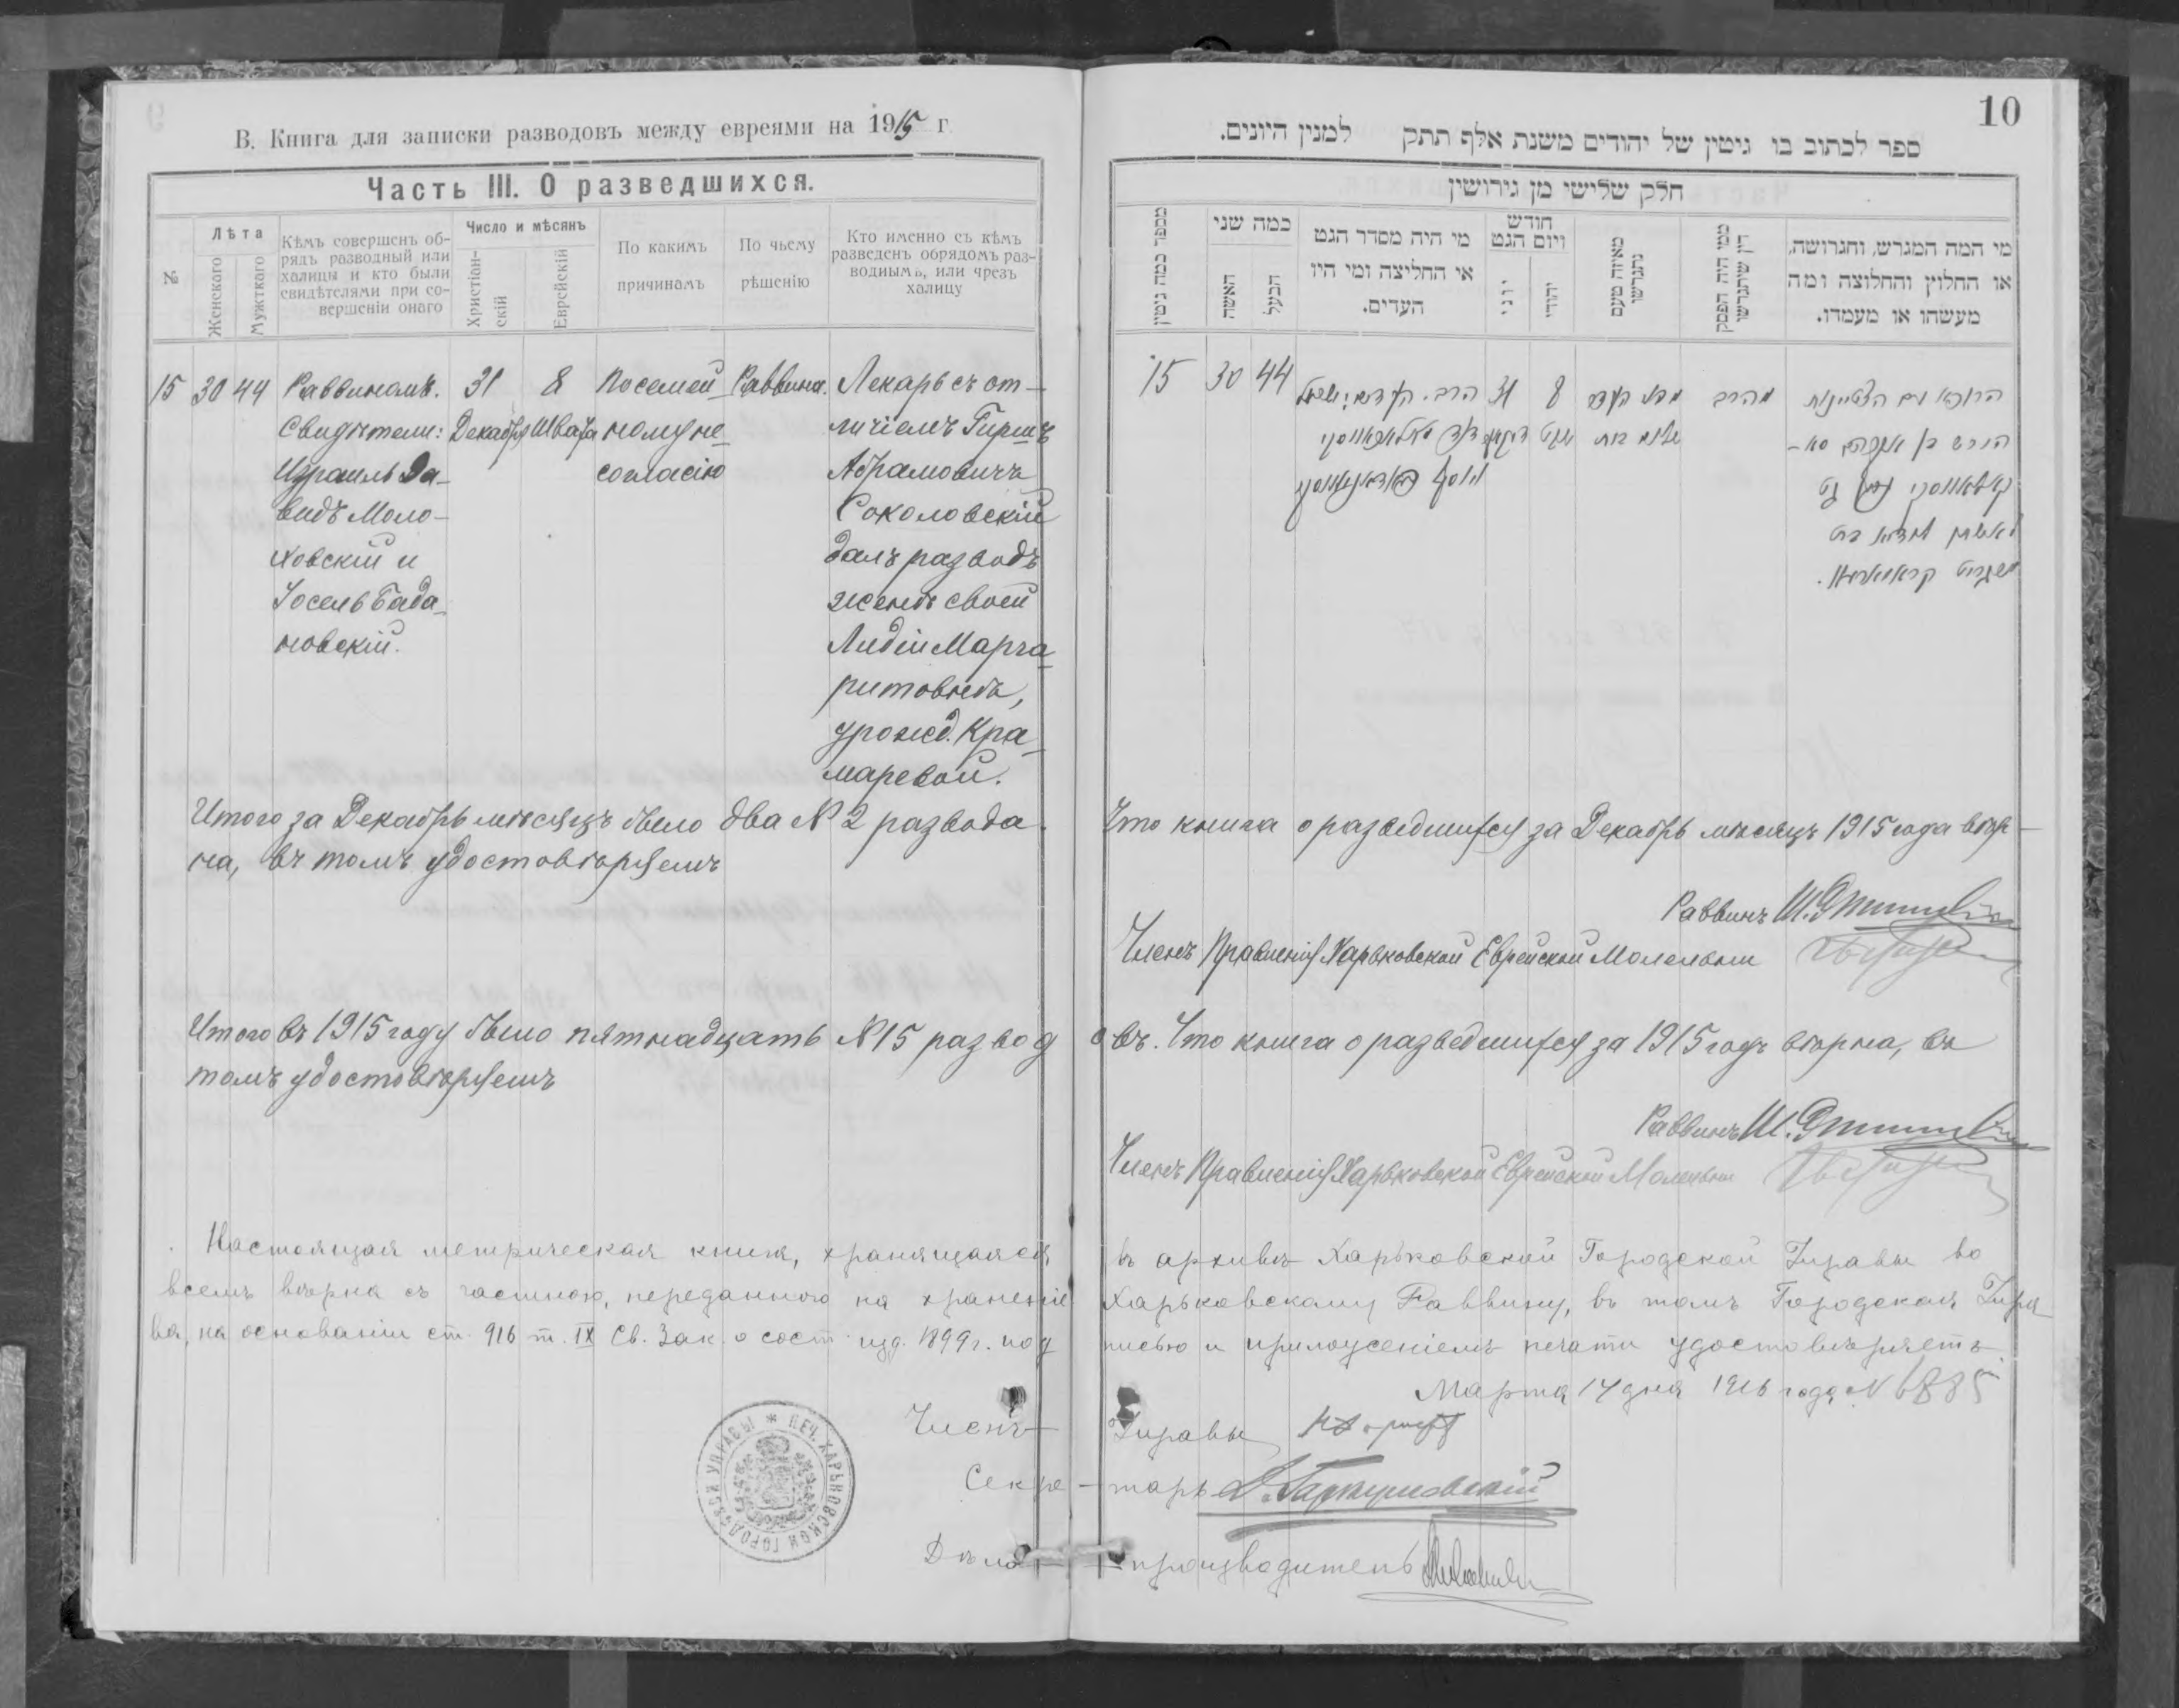 В. Книга для записки разводовъ между евреями на 1915 г
Часть III. О разведшихся.
№
Лѣта
Женскаго
Мужткаго
Кѣмъ совершенъ об-
рядъ разводный или
халицы и кто были
свидѣтелями при со-
вершеніи онаго
Число и мѣсяцъ
Христіан-
скій
Еврейскій
По какимъ
причинамъ
По чьему
рѣшенію
Кто именно съ кѣмъ
разведенъ обрядомъ раз-
воднымъ, или чрезъ
халицу
15 30 44 Раввиномъ. 31 8 По семей- Раввина. Лекарь съ от-
Свидѣтели: Декабря Швата ному не- личіемъ Гиршъ
Израиль Да- согласію Абрамовичъ
видъ Моло- Соколовскій
ховскій и далъ разводъ
Іосель Бада- женѣ своей
новскій. Лидіи Марга-
ритовнѣ,
урожд. Кра-
маревой.
10
ספר לכתוב בו גיטין של יהודים משנת אלף תתק למנין היונים.
חלק שלישי מן גירושין
מספר כמה גיטין
כמה שני
האשה
הבעל
מי היה מסדר הגט
או החליצה ומי היו
העדים.
חודש
ויום הגט
יוני
יהודי
מאיזה טעם
נתגרשו
ממי היה הפסק
דין שיתגרשו
מי המה המגרש, והגרושה,
או החלוץ והחלוצה ומה
מעשהו או מעמדו.
15 30 44 הרב. 31 8 מהרב
Итого за Декабрь мѣсяцъ было два № 2 развода. Что книга о разведшихся за Декабрь мѣсяцъ 1915 года вѣр-
на, въ томъ удостовѣряемъ
Раввинъ
Членъ Правленія Харьковской Еврейской Молельни
Итого въ 1915 году было пятнадцать № 15 разводовъ. Что книга о разведшихся за 1915 годъ вѣрна, въ
томъ удостовѣряемъ
Раввинъ
Членъ Правленія Харьковской Еврейской Молельни
Настоящая метрическая книга, хранящаяся въ архивѣ Харьковской Городской Управы во
всемъ вѣрна съ частною, переданною на храненіе Харьковскому Раввину, въ томъ Городская Упра-
ва, на основаніи ст. 916 т. IX Св. Зак. о сост. изд. 1899 г. подписью и приложеніемъ печати удостовѣряетъ.
Марта 14 дня 1916 года № 6885
Членъ Управы
Секре-тарь
Дѣло-производитель
ПЕЧ. ХАРЬКОВСКОЙ ГОРОДСКОЙ УПРАВЫ